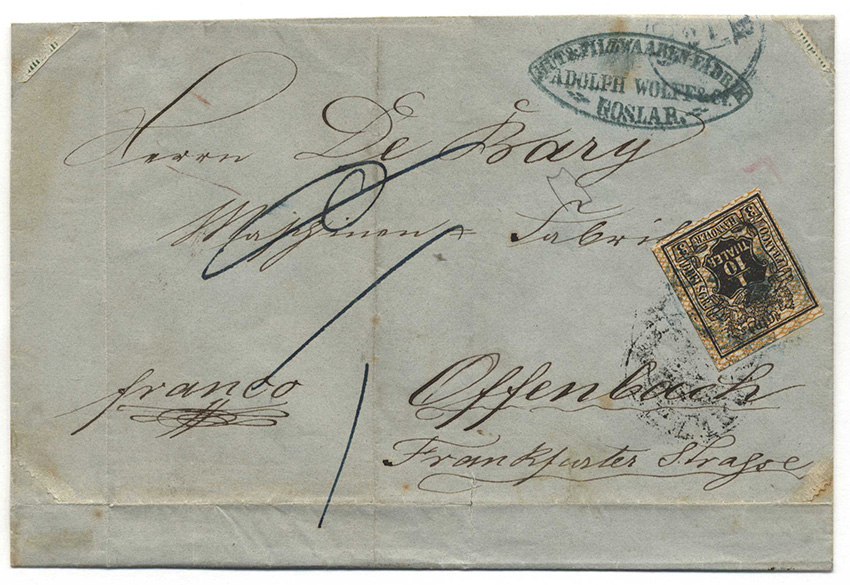 HUT & FILZWAAREN-FABRIK
ADOLPH WOLFF & C.
GOSLAR.
Herrn De Bary
Maschinen = Fabrik
HANNOVER
1/10
THALER
franco
Offenbach
Frankfurter Strasse